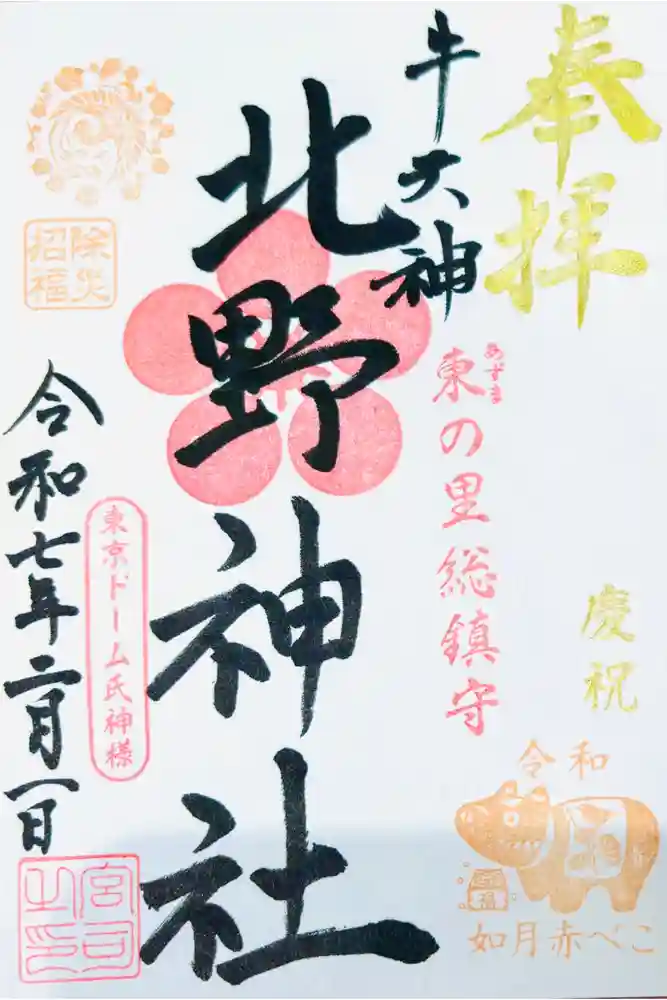 奉拝
慶祝
令和
如月赤べこ
牛天神
あずま
東の里総鎮守
北野神社
除災
招福
東京ドーム氏神様
令和七年二月一日
宮司
之印